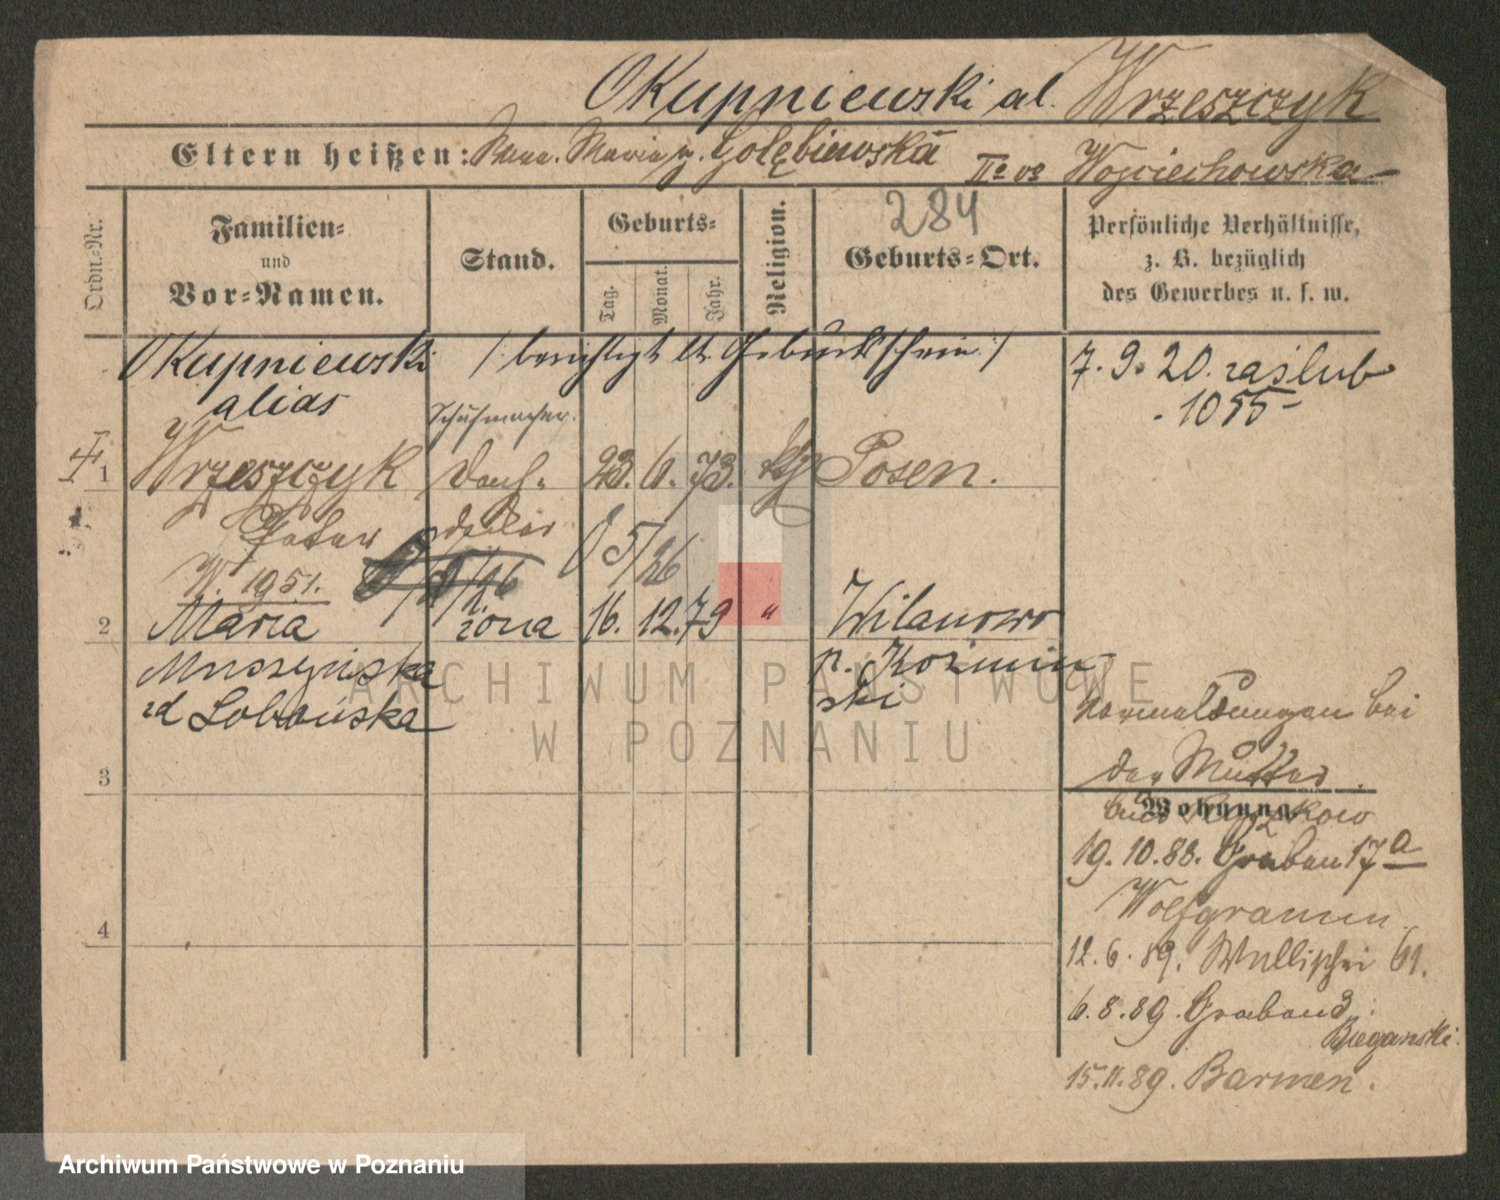 Okupniewski al. Wrzeszczyk
Eltern heißen: Maria g. Gołębiewska IIo vo Wojciechowska
284
Ordn.-Nr.
Familien-
und
Vor-Namen.
Stand.
Geburts-
Tag.
Monat.
Jahr.
Religion.
Geburts-Ort.
Persönliche Verhältnisse,
z. B. bezüglich
des Gewerbes u. s. w.
Okupniewski /: berichtigt lt. Geburtsschein :/
alias
7. 9. 20. zaślub
- 1055 -
Schuhmacher.
1 Wrzeszczyk Dach- 23. 6. 73. kg Posen.
Peter decker
W. 1951.
5/26
2 Maria żona 16. 12. 79 " Wilanowo
Muszyńska p. Koźmin
zd Lobońska ski
Vormeldungen bei
der Mutter
3
Wohnung
19. 10. 88. Graben 17a
Wolfgramm
4
12. 6. 89. Wallischei 61.
6. 8. 89. Graben 3.
Bieganski.
15. 11. 89. Barmen.
ARCHIWUM PAŃSTWOWE
W POZNANIU
Archiwum Państwowe w Poznaniu